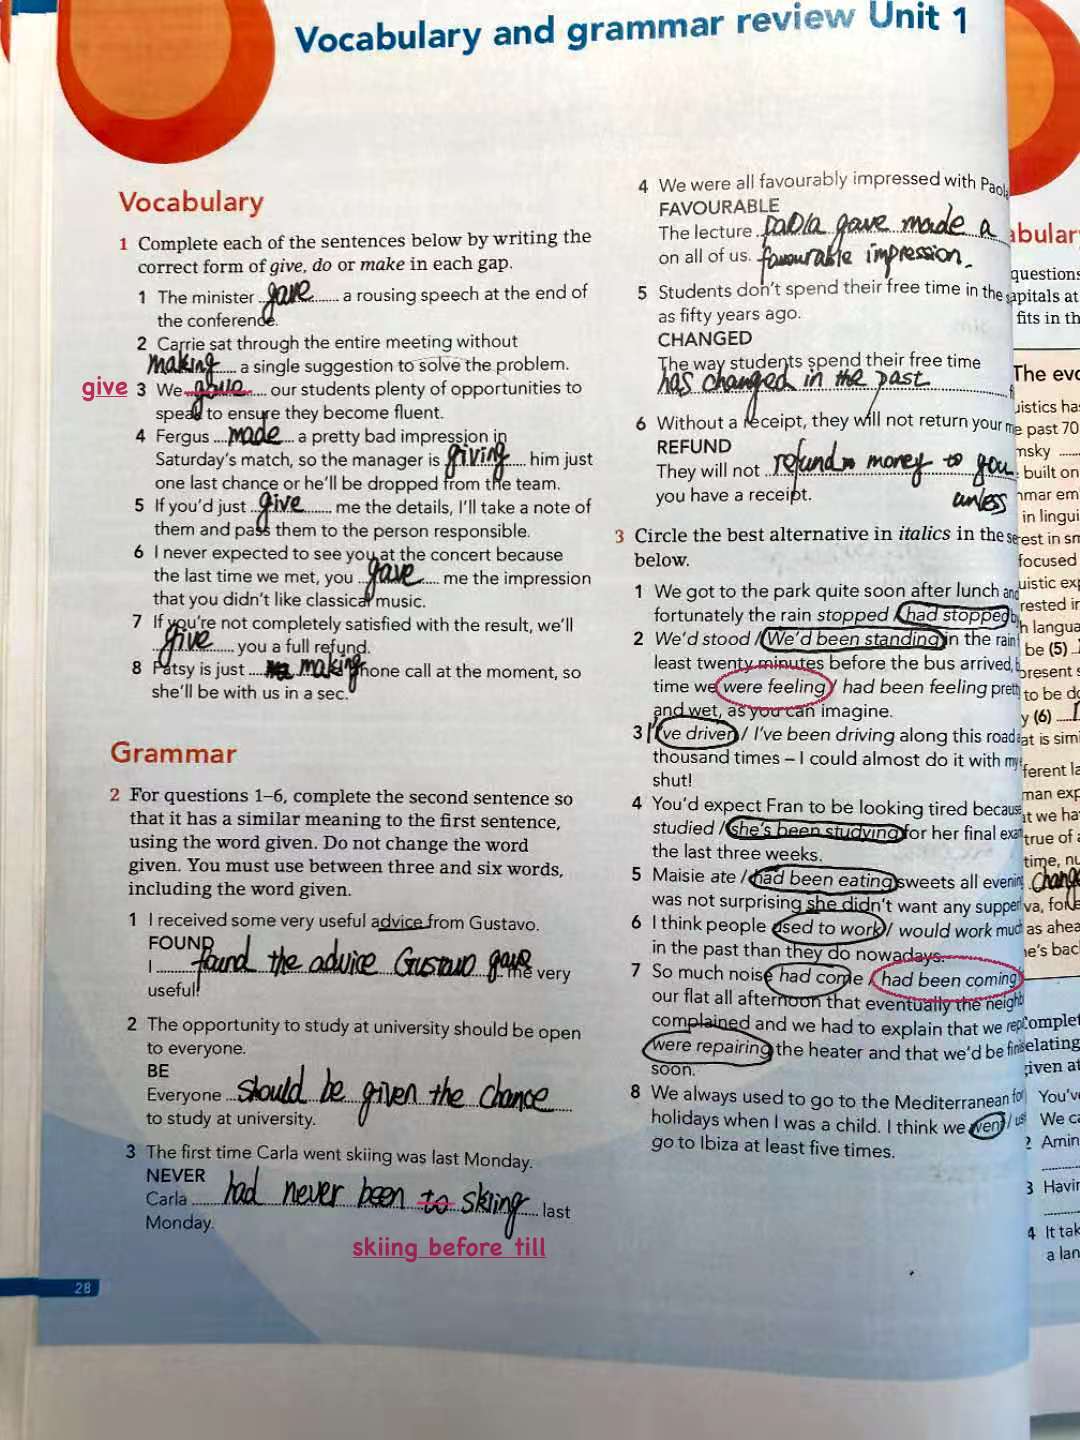 Vocabulary and grammar review Unit 1
Vocabulary
1 Complete each of the sentences below by writing the
correct form of give, do or make in each gap.
1 The minister gave a rousing speech at the end of
the conference.
2 Carrie sat through the entire meeting without
making a single suggestion to solve the problem.
give 3 We our students plenty of opportunities to
speak to ensure they become fluent.
4 Fergus made a pretty bad impression in
Saturday's match, so the manager is giving him just
one last chance or he'll be dropped from the team.
5 If you'd just give me the details, I'll take a note of
them and pass them to the person responsible.
6 I never expected to see you at the concert because
the last time we met, you gave me the impression
that you didn't like classical music.
7 If you're not completely satisfied with the result, we'll
give you a full refund.
8 Patsy is just making phone call at the moment, so
she'll be with us in a sec.
Grammar
2 For questions 1–6, complete the second sentence so
that it has a similar meaning to the first sentence,
using the word given. Do not change the word
given. You must use between three and six words,
including the word given.
1 I received some very useful advice from Gustavo.
FOUND
I found the advice Gustavo gave me very
useful!
2 The opportunity to study at university should be open
to everyone.
BE
Everyone should be given the chance
to study at university.
3 The first time Carla went skiing was last Monday.
NEVER
Carla had never been to skiing last
Monday.
skiing before till
28
4 We were all favourably impressed with Paola
FAVOURABLE
The lecture paola gave made a
on all of us. favourable impression.
5 Students don't spend their free time in the
as fifty years ago.
CHANGED
The way students spend their free time
has changed in the past
6 Without a receipt, they will not return your
REFUND
They will not refund money to you
you have a receipt. unless
3 Circle the best alternative in italics in the
below.
1 We got to the park quite soon after lunch and
fortunately the rain stopped / had stopped
2 We'd stood / We'd been standing in the rain
least twenty minutes before the bus arrived,
time we were feeling / had been feeling
and wet, as you can imagine.
3 I've driven / I've been driving along this road
thousand times – I could almost do it with my
shut!
4 You'd expect Fran to be looking tired because
studied / she's been studying for her final
the last three weeks.
5 Maisie ate / had been eating sweets all evening
was not surprising she didn't want any supper
6 I think people used to work / would work
in the past than they do nowadays.
7 So much noise had come / had been coming
our flat all afternoon that eventually the
complained and we had to explain that we
were repairing the heater and that we'd be
soon.
8 We always used to go to the Mediterranean for
holidays when I was a child. I think we went /
go to Ibiza at least five times.
questions
capitals at
fits in th
The evo
e past 70
built on
in lingui
focused
be (5)
to be do
y (6)
at is simi
true of a
time,
change
as ahea
Complet
elating
given at
You've
We ca
2 Amin
3 Havin
4 It tak
a lan